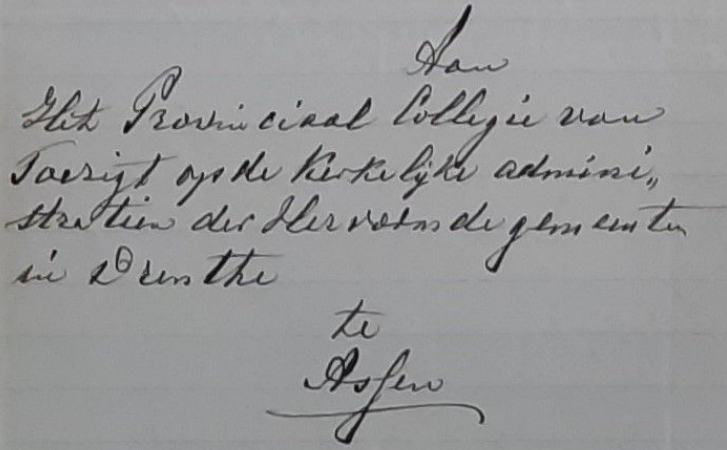 Aan
Het Provinciaal Collegie van
Toezigt op de Kerkelijke admini„
stratien der Hervormde gemeenten
in Drenthe
te
Assen